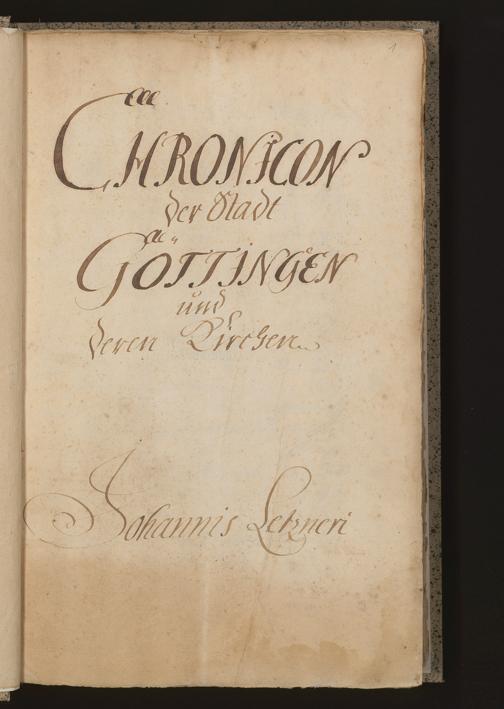 1
CHRONICON
der Stadt
GÖTTINGEN
und
deren Kirchen
Johannis Letzneri